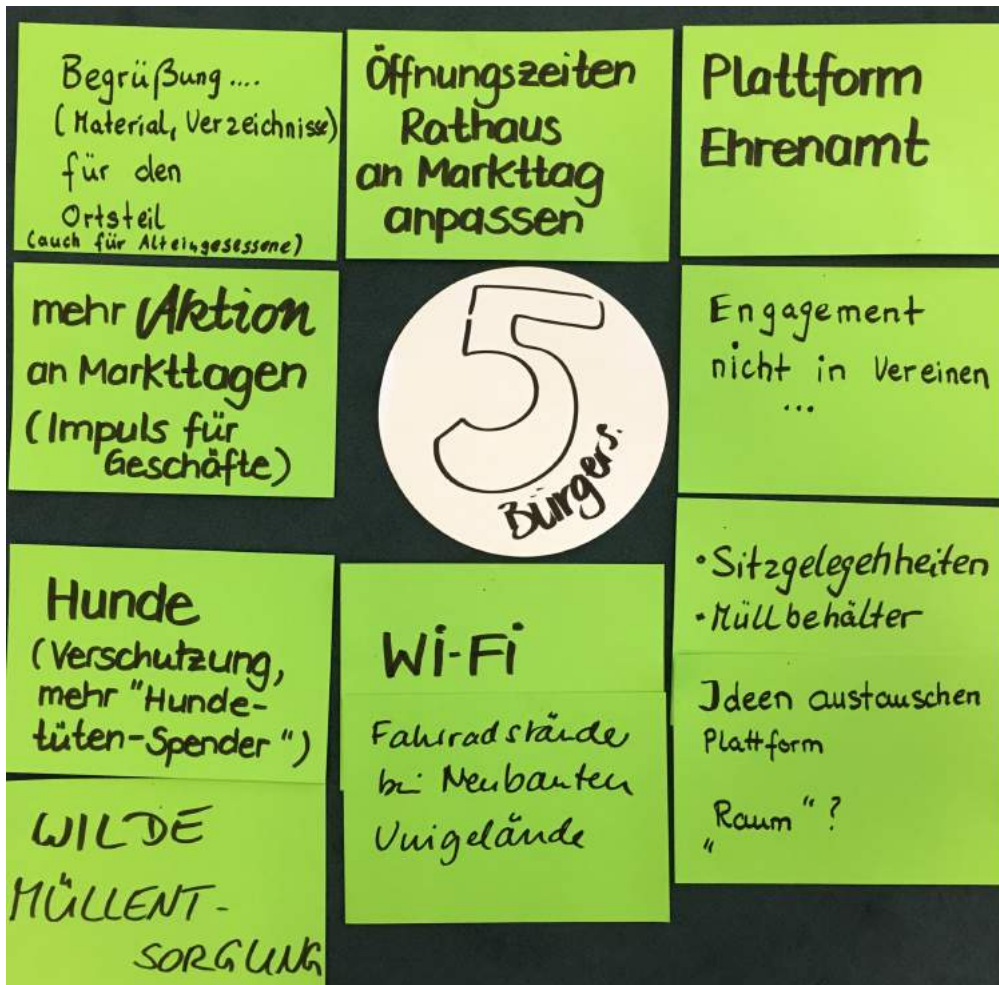 Begrüßung....
(Material, Verzeichnisse)
für den
Ortsteil
(auch für Alteingesessene)
Öffnungszeiten
Rathaus
an Markttag
anpassen
Plattform
Ehrenamt
mehr Aktion
an Markttagen
(Impuls für
Geschäfte)
5
Bürgers.
Engagement
nicht in Vereinen
...
Hunde
(Verschutzung,
mehr "Hunde-
tüten-Spender")
Wi-Fi
• Sitzgelegenheiten
• Müllbehälter
WILDE
MÜLLENT-
SORGUNG
Fahrradstände
bei Neubauten
Unigelände
Ideen austauschen
Plattform
„Raum“?